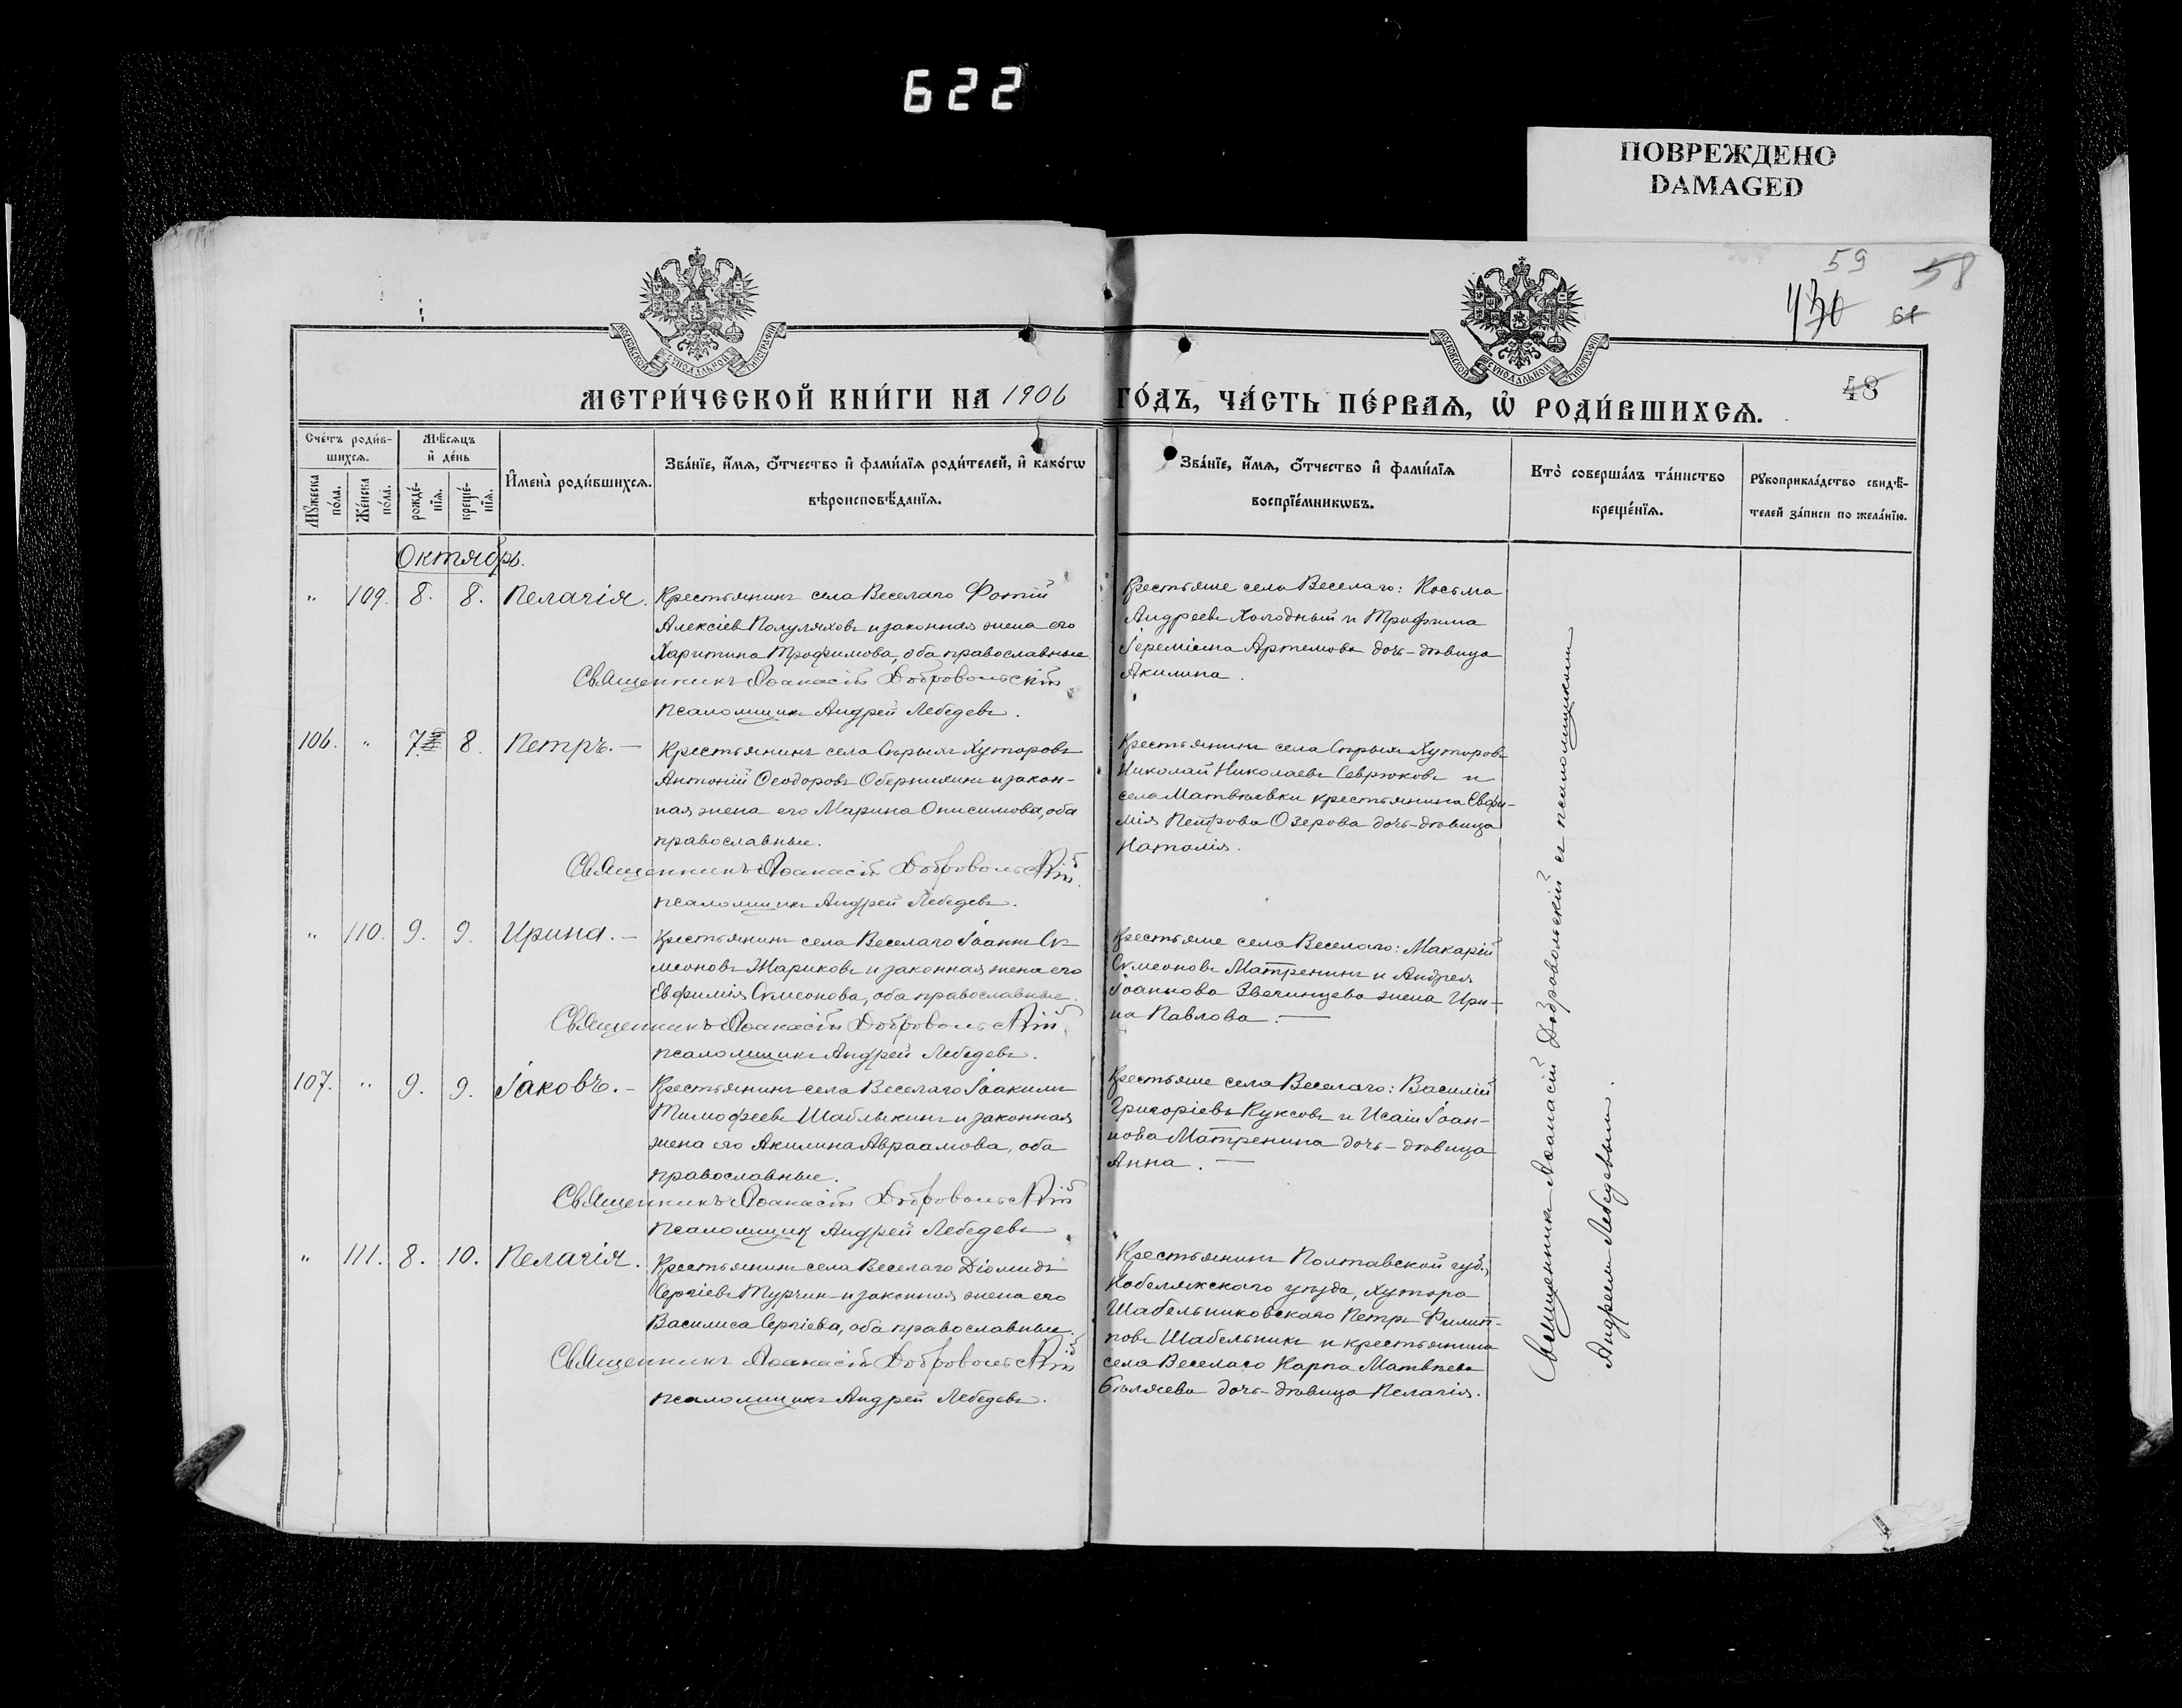 622
ПОВРЕЖДЕНО
DAMAGED
59 58
61
48
МОСКОВСКОЙ СѴНОДАЛЬНОЙ ТИПОГРАФІИ
МОСКОВСКОЙ СѴНОДАЛЬНОЙ ТИПОГРАФІИ
МЕТРИ́ЧЕСКОЙ КНИ́ГИ НА 1906 ГО́ДЪ, ЧА́СТЬ ПЕ́РВАѦ, Ѡ҆ РОДИ́ВШИХСѦ.
Сче́тъ роди́в-
шихсѧ.
Мꙋ́жеска по́ла.
Же́нска по́ла.
Мѣ́сѧцъ
и҆ де́нь
рожде́-
нїѧ.
креще́-
нїѧ.
И҆мена̀ роди́вшихсѧ.
Зва́нїе, и҆́мѧ, ѻ҆́тчество и҆ фами́лїѧ роди́телей, и҆ како́гѡ
вѣроисповѣ́данїѧ.
Зва́нїе, и҆́мѧ, ѻ҆́тчество и҆ фами́лїѧ
воспрїе́мникѡвъ.
Кто̀ соверша́лъ та́инство
креще́нїѧ.
Рꙋкоприкла́дство свидѣ́-
телей за́писи по жела́нїю.
Октябрь.
" 109. 8. 8. Пелагія.
Крестьянинъ села Веселаго Фотій
Алексіевъ Полуляховъ и законная жена его
Харитина Трофимова, оба православные
Священникъ Аѳанасій Добровольскій
Псаломщикъ Андрей Лебедевъ.
Крестьяне села Веселаго: Косьма
Андреевъ Холодный и Трофима
Іереміина Артемова дочь-дѣвица
Акилина.
106. " 7. 8. Петръ. —
Крестьянинъ села Сѣрыхъ Хуторовъ
Антоній Ѳеодоровъ Обернихинъ и закон-
ная жена его Марина Онисимова, оба
православные.
Священникъ Аѳанасій Добровольскій.
Псаломщикъ Андрей Лебедевъ.
Крестьянинъ села Сѣрыхъ Хуторовъ
Николай Николаевъ Севрюковъ и
села Матвѣевки крестьянина Евфи-
мія Петрова Озерова дочь-дѣвица
Наталія.
" 110. 9. 9. Ирина. —
Крестьянинъ села Веселаго Іоаннъ Си-
меоновъ Жариковъ и законная жена его
Евфимія Симеонова, оба православные.
Священникъ Аѳанасій Добровольскій.
Псаломщикъ Андрей Лебедевъ.
Крестьяне села Веселаго: Макарій
Симеоновъ Матренинъ и Андрея
Іоаннова Звечинцева жена Ири-
на Павлова. —
107. " 9. 9. Іаковъ. —
Крестьянинъ села Веселаго Іоакимъ
Тимофеевъ Шаблыкинъ и законная
жена его Акилина Авраамова, оба
православные.
Священникъ Аѳанасій Добровольскій
Псаломщикъ Андрей Лебедевъ
Крестьяне села Веселаго: Василій
Григоріевъ Куксовъ и Исаіи Іоан-
нова Матренина дочь-дѣвица
Анна. —
" 111. 8. 10. Пелагія.
Крестьянинъ села Веселаго Діомидъ
Сергіевъ Турчин и законная жена его
Василиса Сергіева, оба православные.
Священникъ Аѳанасій Добровольскій
Псаломщикъ Андрей Лебедевъ.
Крестьянинъ Полтавской губ.,
Кобелякскаго уѣзда, Хутора
Шабельниковскаго Петръ Филип-
повъ Шабельникъ и крестьянина
села Веселаго Карпа Матвѣева
Бѣляева дочь-дѣвица Пелагія.
Священникъ Аѳанасій Добровольскій съ псаломщикомъ
Андреемъ Лебедевымъ.